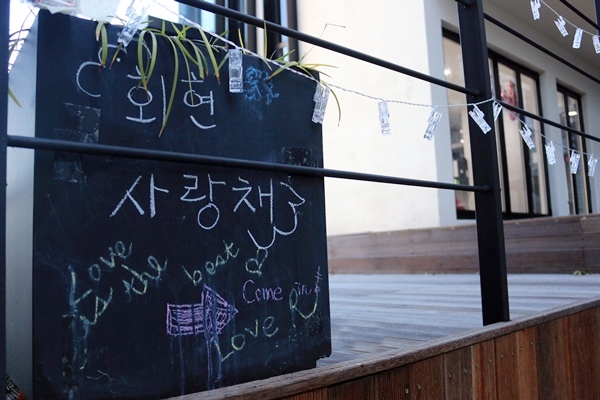 회현
사랑채
Love
is the best
Come in
Love